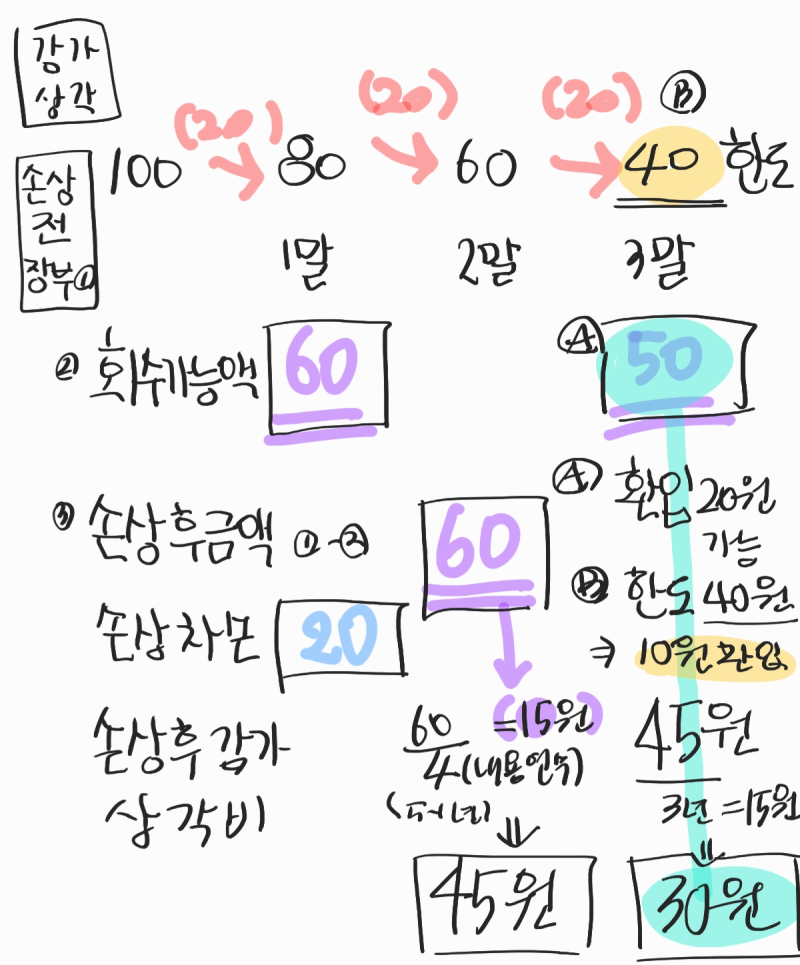 감가
상각
(20) (20) (20) Ⓑ
손상
전
장부①
100 → 80 → 60 → 40 한도
1말 2말 3말
② 회수가능액 60
Ⓐ 50
③ 손상후금액 ①-② 60
손상차손 20
손상후 감가
상각비
60/4 (내용연수) = (15원)
⇓
45원
Ⓐ 환입 20원
가능
Ⓑ 한도 40원
⇒ 10원 환입
45원/3년 = 15원
⇓
30원